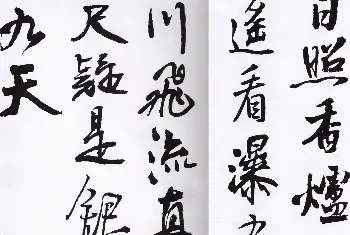 日照香爐
遙看瀑
川飛流直
尺疑是銀
九天